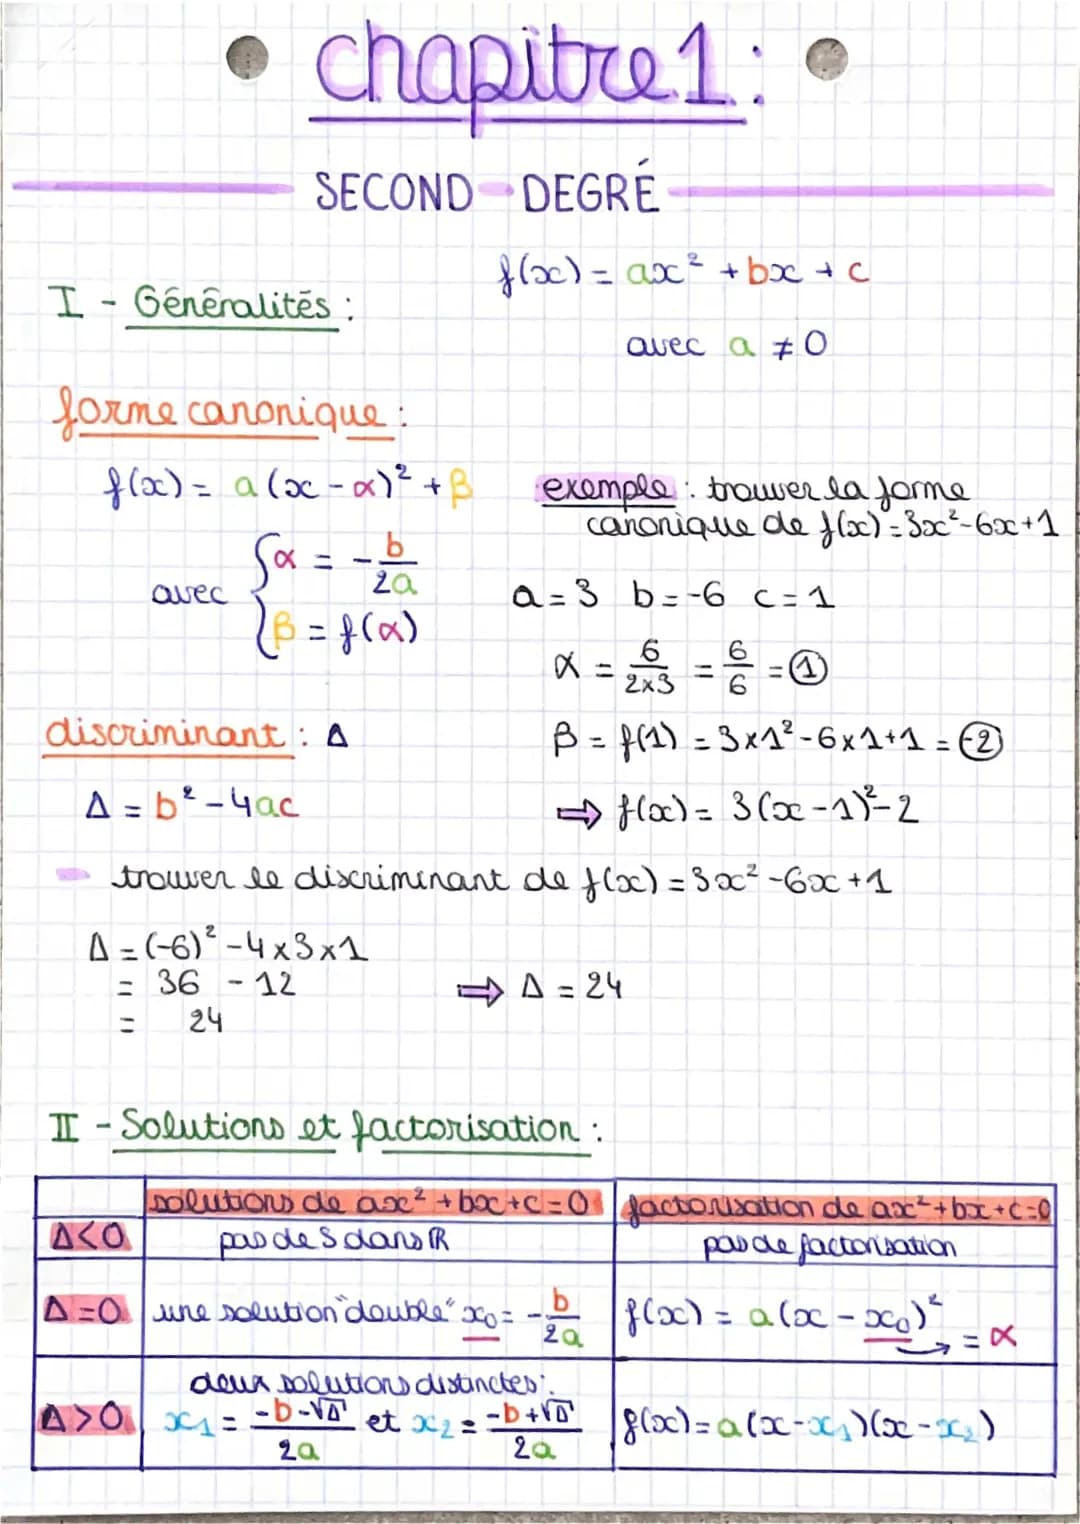 chapitre 1 :
SECOND DEGRÉ
f(x) = ax² + bx + c
I - Généralités :
avec a ≠ 0
forme canonique :
f(x) = a(x - α)² + β
avec { α = -b/2a
β = f(α)
exemple : trouver la forme
canonique de f(x) = 3x² - 6x + 1
a = 3 b = -6 c = 1
α = 6/2×3 = 6/6 = 1
β = f(1) = 3×1² - 6×1 + 1 = -2
⇒ f(x) = 3(x - 1)² - 2
discriminant : Δ
Δ = b² - 4ac
trouver le discriminant de f(x) = 3x² - 6x + 1
Δ = (-6)² - 4×3×1
= 36 - 12
= 24
⇒ Δ = 24
II - Solutions et factorisation :
solutions de ax² + bx + c = 0 factorisation de ax² + bx + c = 0
Δ < 0 pas de S dans ℝ pas de factorisation
Δ = 0 une solution "double" x₀ = -b/2a f(x) = a(x - x₀)² = α
deux solutions distinctes :
Δ > 0 x₁ = -b-√Δ/2a et x₂ = -b+√Δ/2a f(x) = a(x - x₁)(x - x₂)